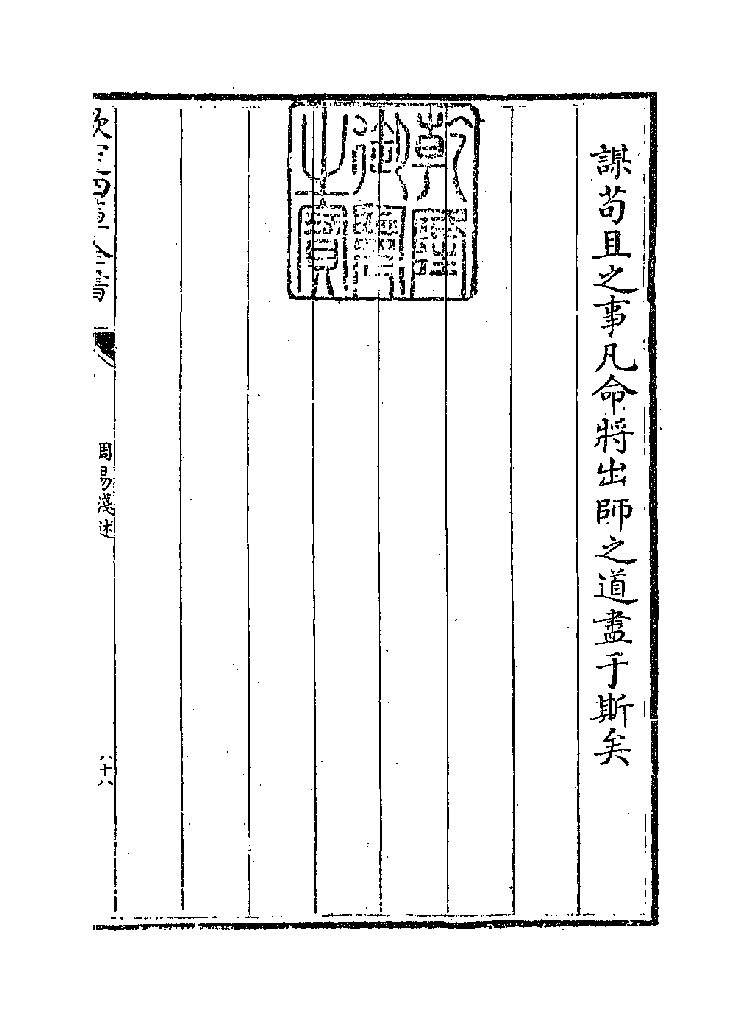 謀苟且之事凡命將出師之道盡于斯矣
乾隆
御覽
之寶
欽定四庫全書
周易淺述
八十八